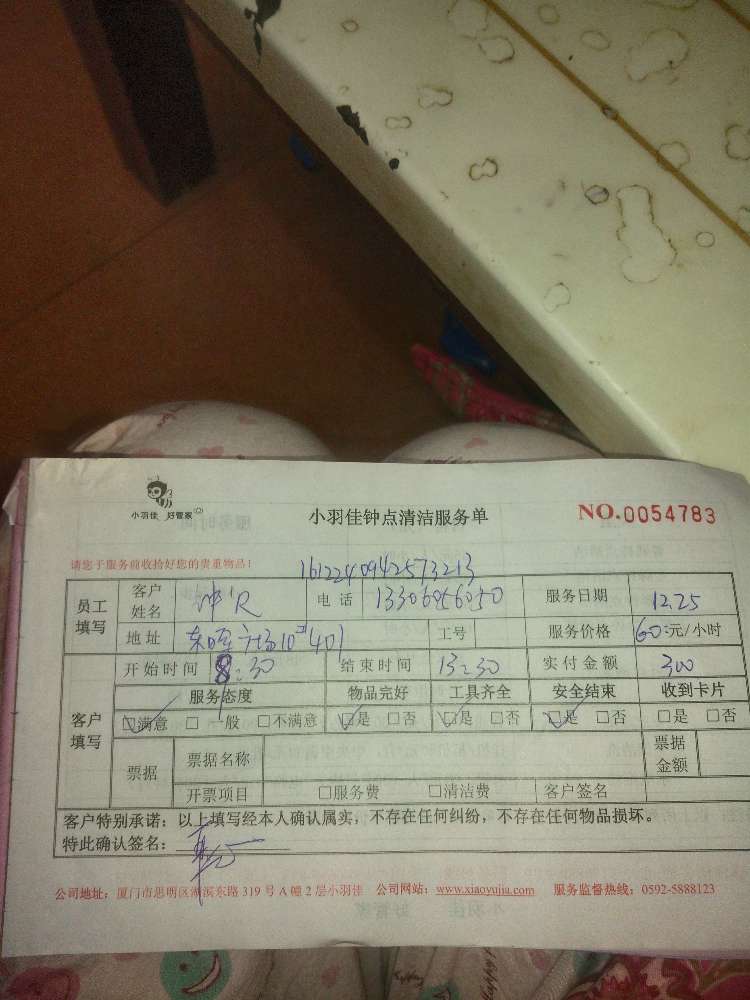 小羽佳 好管家
小羽佳钟点清洁服务单
NO.0054783
请您于服务前收拾好您的贵重物品!
1612240942573213
员工填写 客户姓名 电话 13306056050 服务日期 12.25
地址 工号 服务价格 60元/小时
客户填写 开始时间 8:30 结束时间 13:30 实付金额 300
服务态度 物品完好 工具齐全 安全结束 收到卡片
☑满意 □一般 □不满意 ☑是 □否 ☑是 □否 ☑是 □否 □是 □否
票据 票据名称 票据金额
开票项目 □服务费 □清洁费 客户签名
客户特别承诺:以上填写经本人确认属实,不存在任何纠纷,不存在任何物品损坏。
特此确认签名:
公司地址:厦门市思明区湖滨东路 319 号 A 幢 2 层小羽佳 公司网站:www.xiaoyujiu.com 服务监督热线:0592-5888123